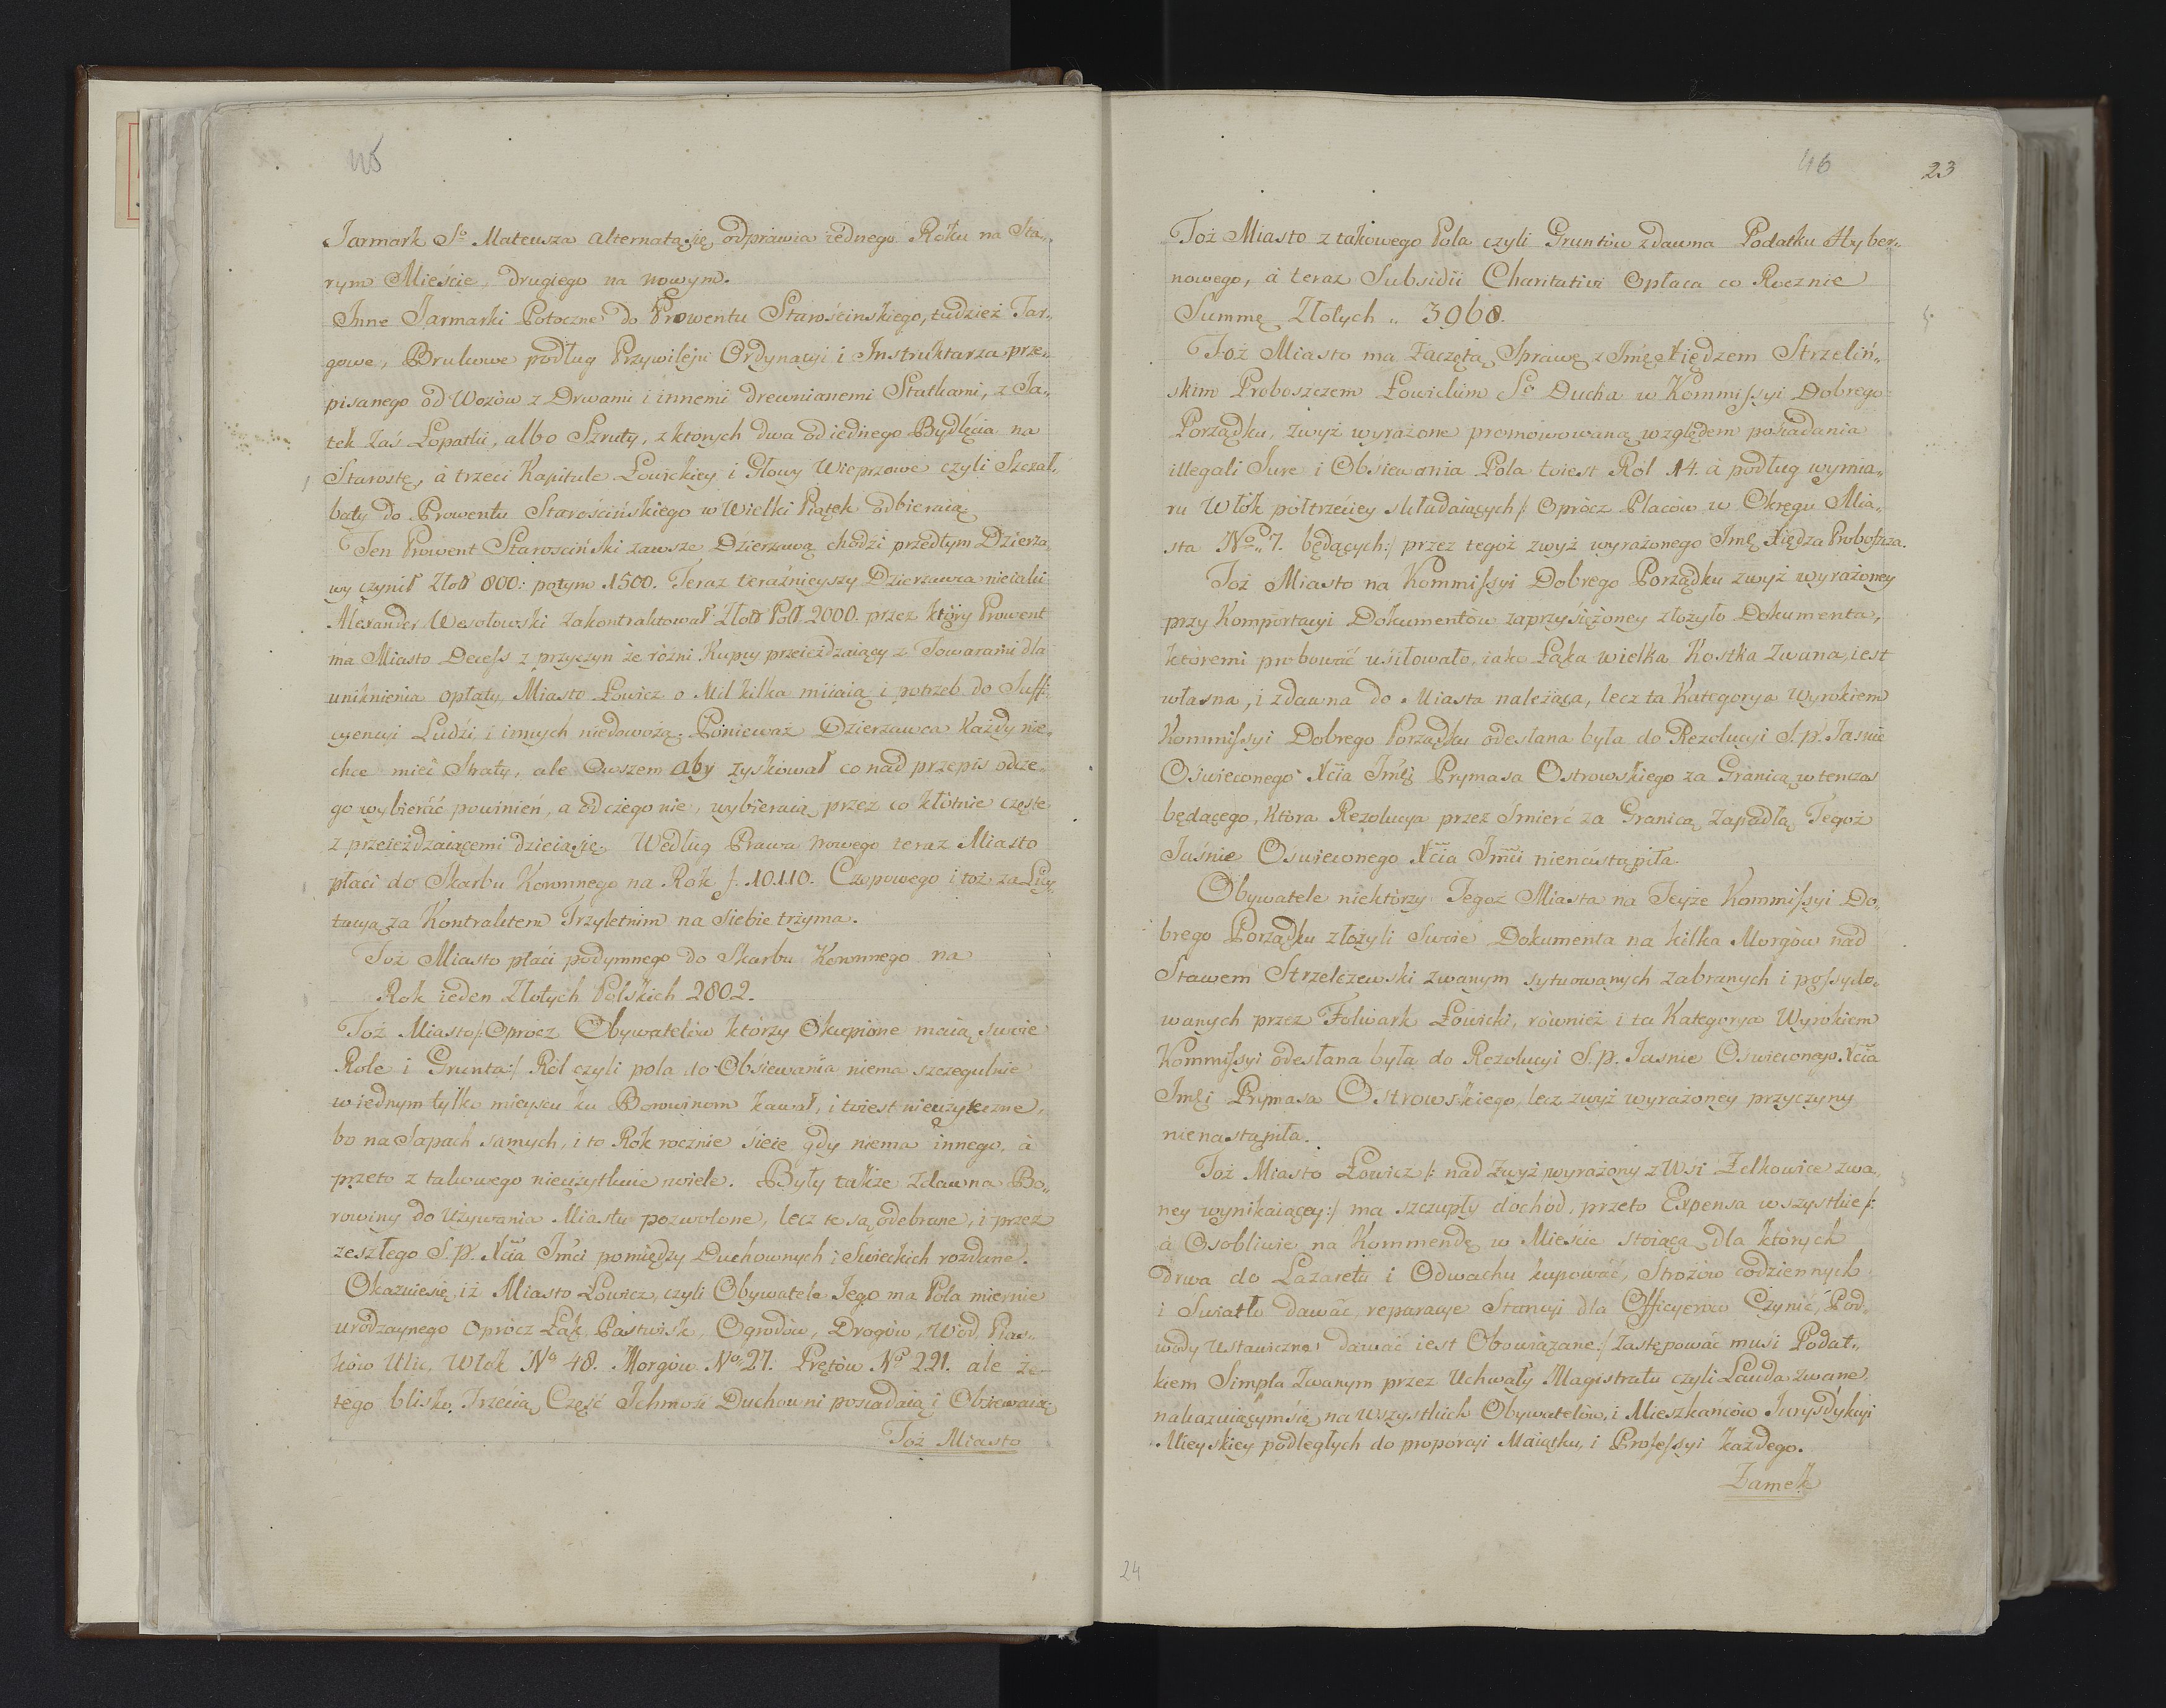 45
Jarmark So Mateusza alternatą się odprawia iednego Roku na Sta„
rym Mieście drugiego na nowym.
Inne Jarmarki Potoczne do Prowentu Starościnskiego, tudzież Tar„
gowe, Brukowe podług Przywileju Ordynacyi i Instruktarza prze„
pisanego od Wozów z Drwami i innemi drewnianemi Statkami, z Ja„
tek zaś Łopatki, albo Szruty, z których dwa od iednego Bydlęcia na
Starostę, à trzeci Kapitule Łowickiey i Głowy Wieprzowe czyli Szczał„
bąty do Prowentu Starościńskiego w Wielki Piątek odbieraią
Ten Prowent Starosciński zawsze Dzierzawą chodzi przedtym Dzierza„
wy czynił Złott 800: potym 1500. Teraz teraźnieyszy Dzierzawca nieiaki
Alexander Wesołowski zakontraktował Złott Poll 2000. przez który Prowent
ma Miasto Decess z przyczyn że różni Kupcy przeieżdzaiący z Towarami dla
uniknienia opłaty, Miasto Łowicz o Mil kilka miiaią i potrzeb do Suffi„
cyencyi Ludzi i innych niedowożą. Ponieważ Dzierzawca każdy nie„
chce mieć Straty, ale Owszem aby zyskował co nad przepis odcze„
go wybierać powinien, a od czego nie, wybieraią przez co kłótnie częste
z przeieżdzaiącemi dzieią się. Według Prawa nowego teraz Miasto
płaci do Skarbu Koronnego na Rok f. 10.110. Czopowego i toż za Licy„
tacyą za Kontraktem Trzyletnim na siebie trzyma.
Toż Miasto płaci podymnego do Skarbu Koronnego na
Rok ieden Złotych Polskich 2802.
Toż Miasto /: Oprócz Obywatelów którzy Okupione maią swoie
Role i Grunta :/ Ról czyli pola do Obsiewania niema szczegulnie
w iednym tylko mieyscu ku Borowinom kawał, i to iest nieużyteczne,
bo na Sapach samych, i to Rok rocznie sieie gdy niema innego, à
przeto z takowego nieużytkuie wiele. Były także zdawna Bo„
rowiny do Używania Miastu pozwolone, lecz te są odebrane, i przez
zeszłego S. p. Xcia Jmci pomiędzy Duchownych i Swieckich rozdane.
Okazuiesię iż Miasto Łowicz czyli Obywatele Jego ma Pola miernie
urodzaynego oprócz Łąk, Pastwisk, Ogrodów, Drogów, Wód, Pias„
ków Ulic, Włók No 48. Morgów No 27. Prętów No 221. ale że
tego blisko Trzecią Część Ichmość Duchowni posiadaią i Obsiewaią
Toż Miasto
46
23
Toż Miasto z takowego Pola czyli Gruntów zdawna Podatku Hyber„
nowego, à teraz Subsidii Charitativi Opłaca co Rocznie
Summę Złotych „ 3960.
Toż Miasto ma zaczętą Sprawę z Jmę Xiędzem Strzeliń„
skim Proboszczem Łowickim So Ducha w Kommissyi Dobrego
Porządku, zwyż wyrażone promowowaną względem posiadania
illegali Jure i Obsiewania Pola to iest Ról 14. à podług wymia„
ru Włók półtrzeciey składaiących /: Oprócz Placów w Okręgu Mia„
sta No 7. będących :/ przez tegoż zwyż wyrażonego Jmę Xiędza Proboszcza.
Toż Miasto na Kommissyi Dobrego Porządku zwyż wyrażoney
przy Komportacyi Dokumentów zaprzysiężoney złożyło Dokumenta,
któremi probować usiłowało, iako Łąka wielka Kostka zwana, iest
własna, i zdawna do Miasta należąca, lecz ta Kategorya Wyrokiem
Kommissyi Dobrego Porządku odesłana była do Rezolucyi S. p. Jasnie
Oświeconego Xcia Jmci Prymasa Ostrowskiego za Granicą w tenczas
będącego, która Rezolucya przez śmierć za Granicą zapadłą Tegoż
Jaśnie Oświeconego Xcia Jmci nienastąpiła.
Obywatele niektórzy Tegoż Miasta na Teyże Kommissyi Do„
brego Porządku złożyli swoie Dokumenta na kilka Morgów nad
Stawem Strzelczewski zwanym sytuowanych zabranych i possydo„
wanych przez Folwark Łowicki, również i ta Kategorya Wyrokiem
Kommissyi odesłana była do Rezolucyi S. p. Jasnie Oswieconego Xcia
Jmci Prymasa Ostrowskiego, lecz zwyż wyrażoney przyczyny
nienastąpiła.
Toż Miasto Łowicz /: nad zwyż wyrażony z Wsi Zelkowice zwa„
ney wynikaiącey :/ ma szczupły dochód, przeto Expensa wszystkie /:
à Osobliwie na Kommendę w Mieście stoiącą dla których
Drwa do Lazaretu i Odwachu kupować, Strożów codziennych
i Swiatło dawać, reparacye Stancyi dla Officyerów Czynić, Pod„
wody Ustawiczne dawać iest Obowiązane :/ zastępować musi Podat„
kiem Simpla zwanym przez Uchwały Magistratu czyli Lauda zwane
nakazuiącym się na wszystkich Obywatelów, i Mieszkanców Jurysdykcyi
Mieyskiey podległych do proporcyi Maiątku, i Professyi każdego.
Zamek
24